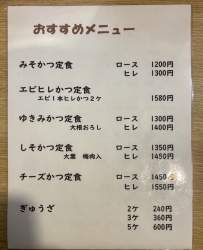 おすすめメニュー
みそかつ定食 ロース 1200円
ヒレ 1300円
エビヒレかつ定食
エビ1本ヒレかつ2ケ 1580円
ゆきみかつ定食 ロース 1300円
大根おろし ヒレ 1400円
しそかつ定食 ロース 1350円
大葉 梅肉入 ヒレ 1450円
チーズかつ定食 ロース 1450円
ヒレ 1550円
ぎょうざ 2ケ 240円
3ケ 360円
5ケ 600円